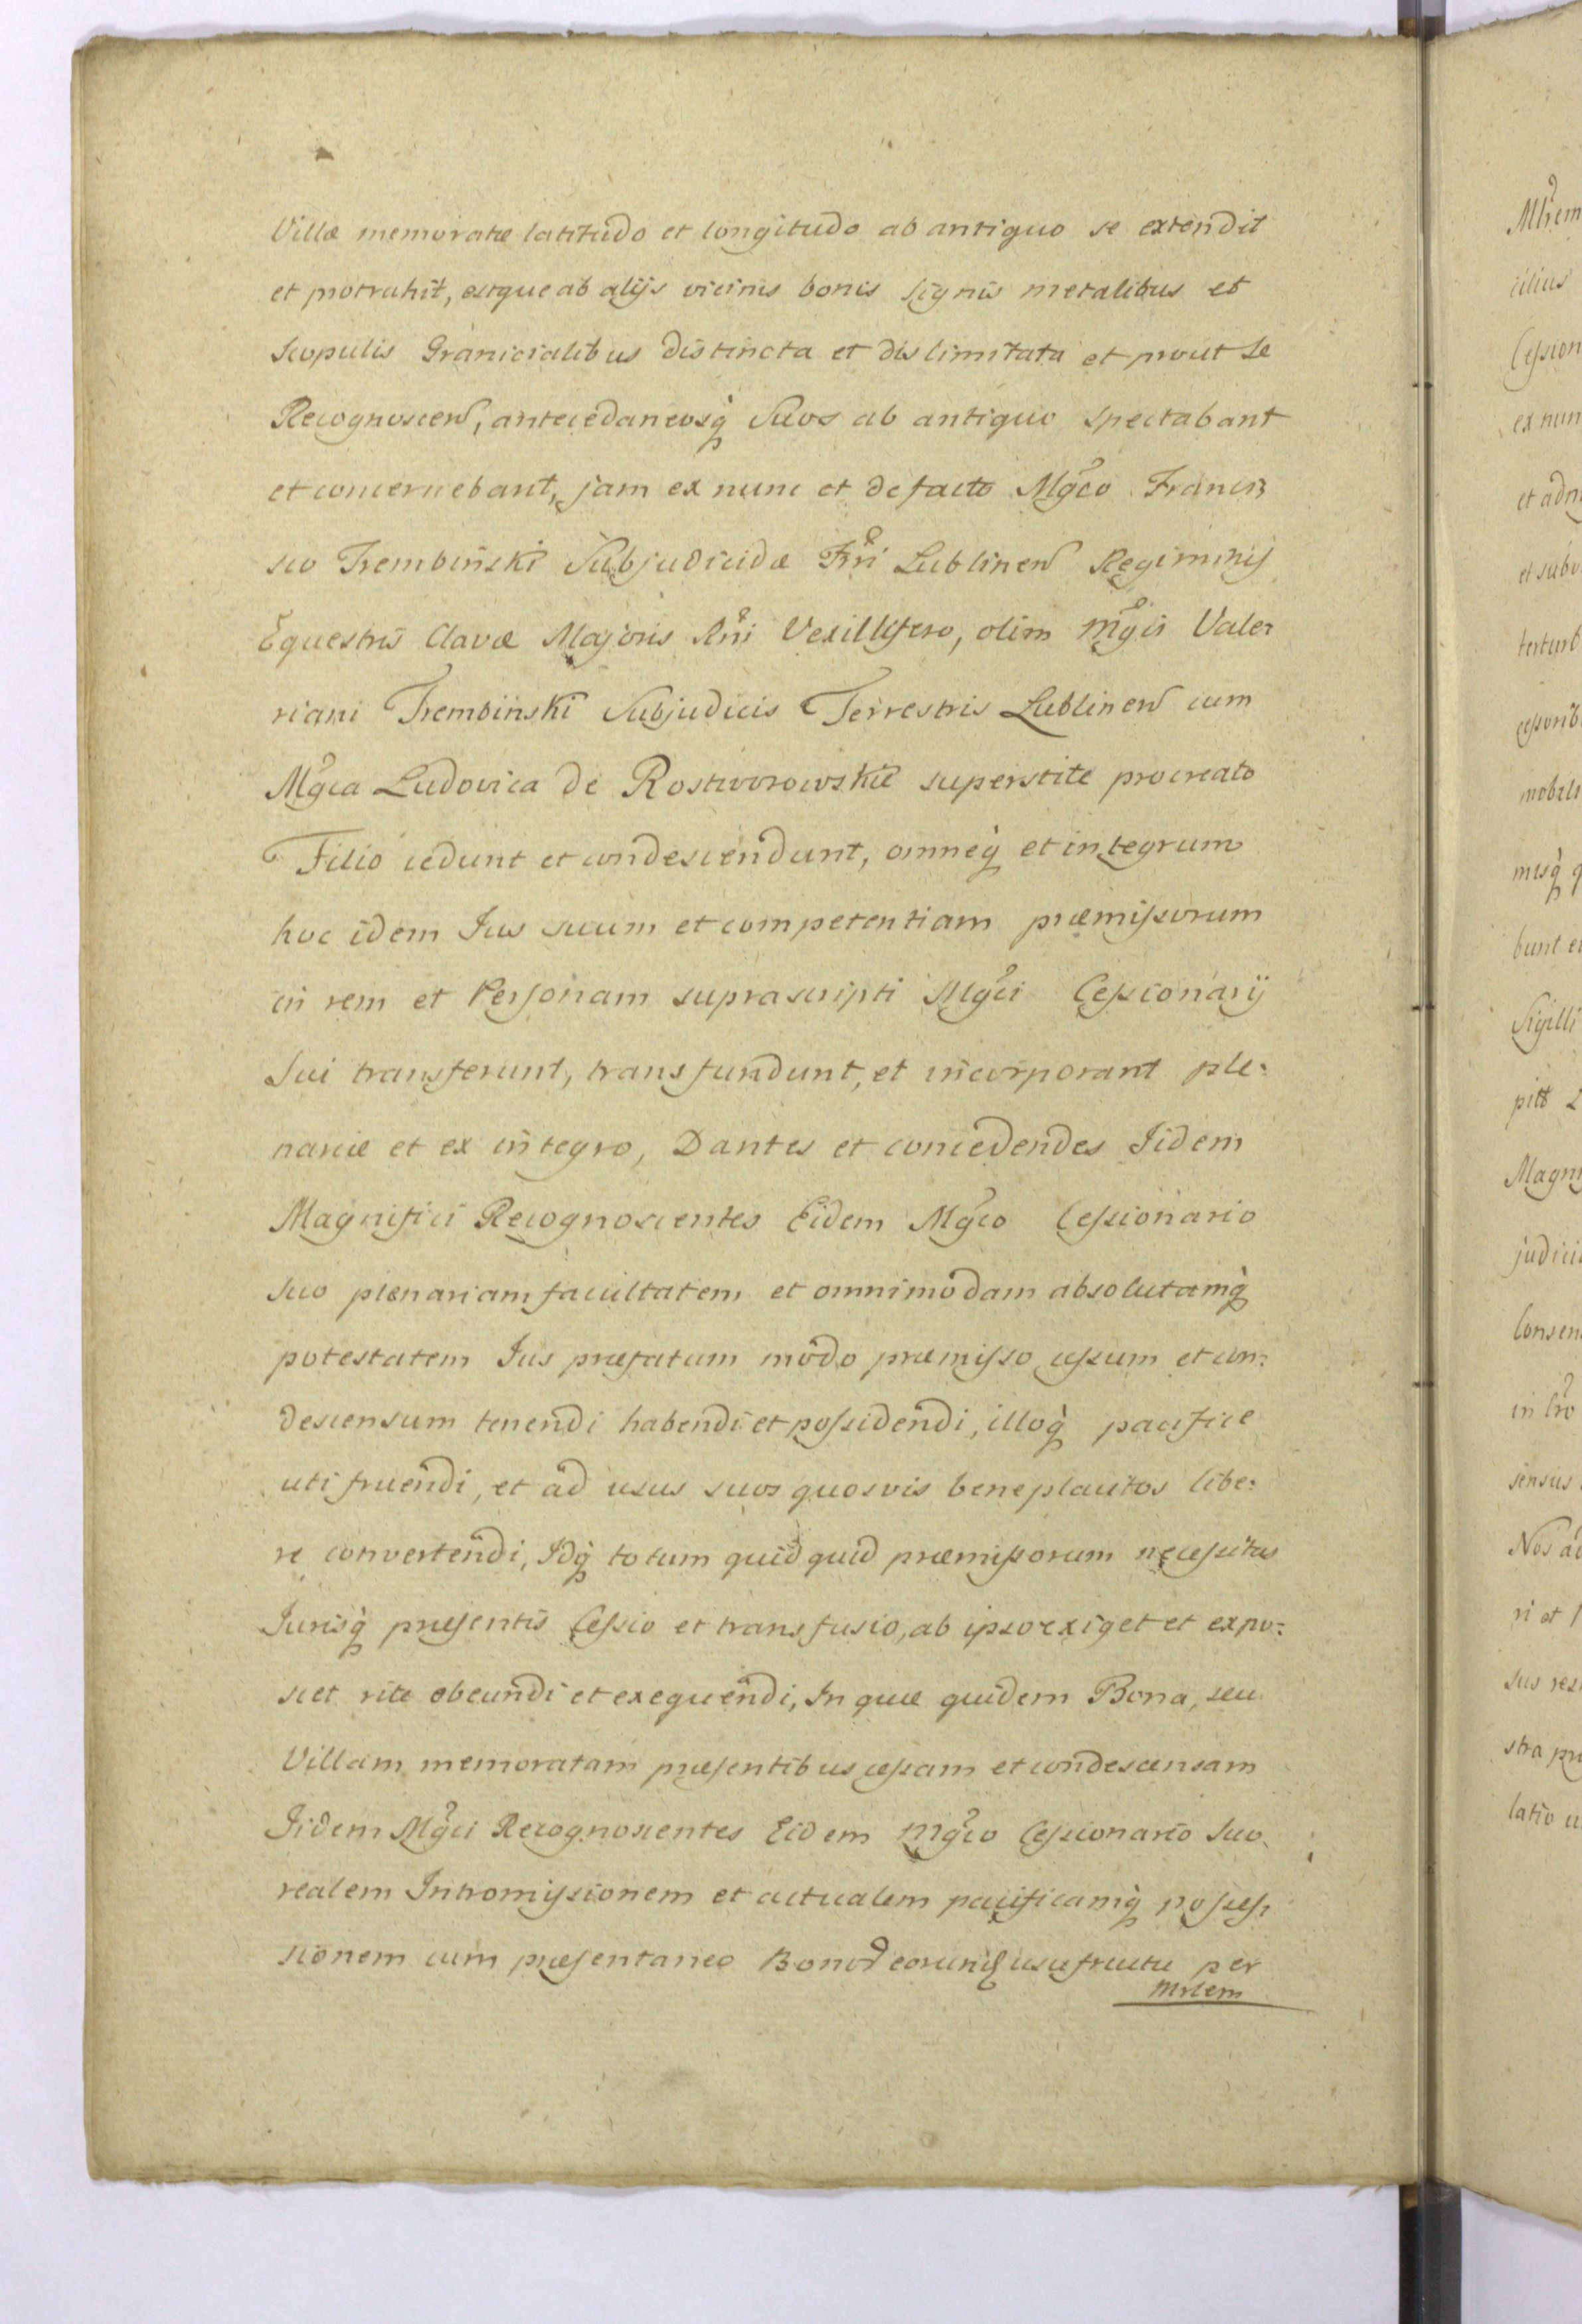 Villæ memoratæ latitudo et longitudo ab antiquo se extendit
et protrahit, estque ab alijs vicinis bonis signis metalibus et
Scopulis Granicialibus distincta et dislimitata et prout Se
Recognoscen, antecedaneosq̀ Suos ab antiquo spectabant
et concernebant, jam ex nunc et de facto Mgco Francis
sco Trembinski Subjudicidæ Trri Lublinen Regiminis
Equestris Clavæ Majoris Rni Vexillifero, olim Mgci Vale:
riani Trembinski Subjudicis Terrestris Lublinen cum
Mgca Ludovica de Rostworowskie superstite procreato
Filio cedunt et condescendunt, omneq̀ et integrum
hoc idem Jus suum et competentiam præmissorum
in rem et Personam suprascripti Mgci Cessionarij
Sui transferunt, transfundunt, et incorporant ple:
narie et ex integro, Dantes et concedendes Jidem
Magnifici Recognoscentes Eidem Mgco Cessionario
Suo plenariam facultatem et omnimodam absolutamq̀
potestatem Jus præfatum modo præmisso cessum et con:
descensum tenendi habendi et possidendi, illoq̀ pacifice
uti fruendi, et ad usus suos quosvis beneplacitos libe:
re convertendi, Jdq̀ totum quidquid præmissorum necessitas
Jurisq̀ præsentis Cessio et transfusio, ab ipso exiget et expo:
scet rite obeundi et exequendi, In quæ quidem Bona, seu
Villam memoratam præsentibus cessam et condescensam
Jidem Mgci Recognoscentes Eidem Mgco Cessionario Suo
realem Intromissionem et actualem pacificamq̀ posses:
sionem cum præsentaneo Bonor eorumq̀ usufructu per
Mrlem